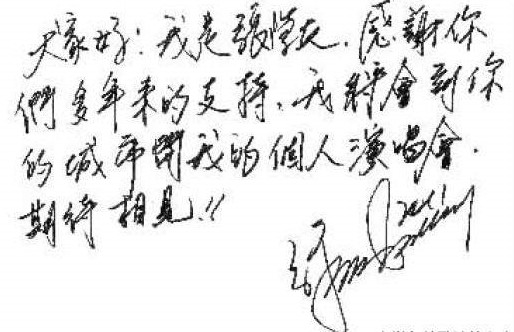 大家好！我是張學友．感謝你
們多年来的支持．我將會到你
的城市開我的個人演唱會．
期待相見！！